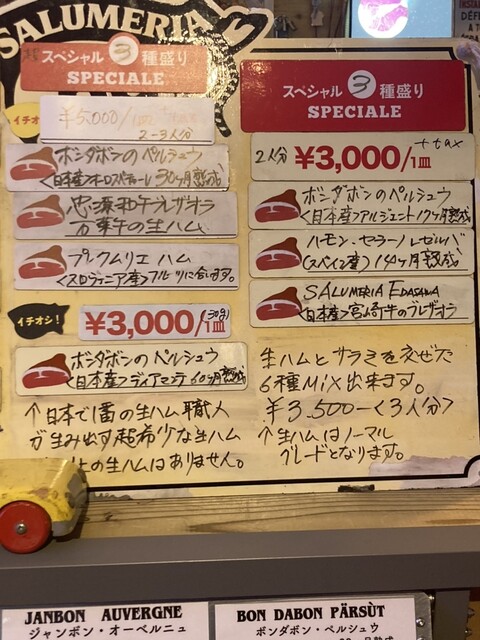 SALUMERIA
スペシャル③種盛り
SPECIALE
イチオシ
¥5,000/1皿
2-3人分
ボンダボンのペルシュウ
30ヶ月熟成〉
和牛ブレザオラ
の生ハム
プレクムリエ ハム
〈スロヴェニア産〉フルーツに合います。
イチオシ!
¥3,000/1皿
30g
ボンダボンのペルシュウ
〈日本産〉ディアマンテ 60ヶ月熟成
↑日本で1番の生ハム職人
が生み出す超希少な生ハム
上の生ハムはありません。
スペシャル③種盛り
SPECIALE
2人分 ¥3,000/1皿 +tax
ボンダボンのペルシュウ
〈日本産〉アルジェント 17ヶ月熟成
ハモン・セラーノ レゼルバ
(スペイン産) 14ヶ月熟成
SALUMERIA EDASAWA
〈日本産〉宮崎牛のブレザオラ
生ハムとサラミを交ぜた
6種MIX出来ます。
¥3.500-〈3人分〉
↑生ハムはノーマル
グレードとなります。
JANBON AUVERGNE
ジャンボン・オーベルニュ
BON DABON PÄRSÙT
ボンダボン・ペルシュウ